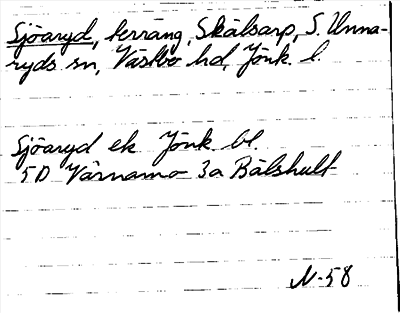 Sjöaryd, terräng, Skålsarp, S. Unna-
ryds sn, Västbo hd, Jönk. l.
Sjöaryd ek Jönk. bl.
5D Värnamo 3a Bälshult
N-58